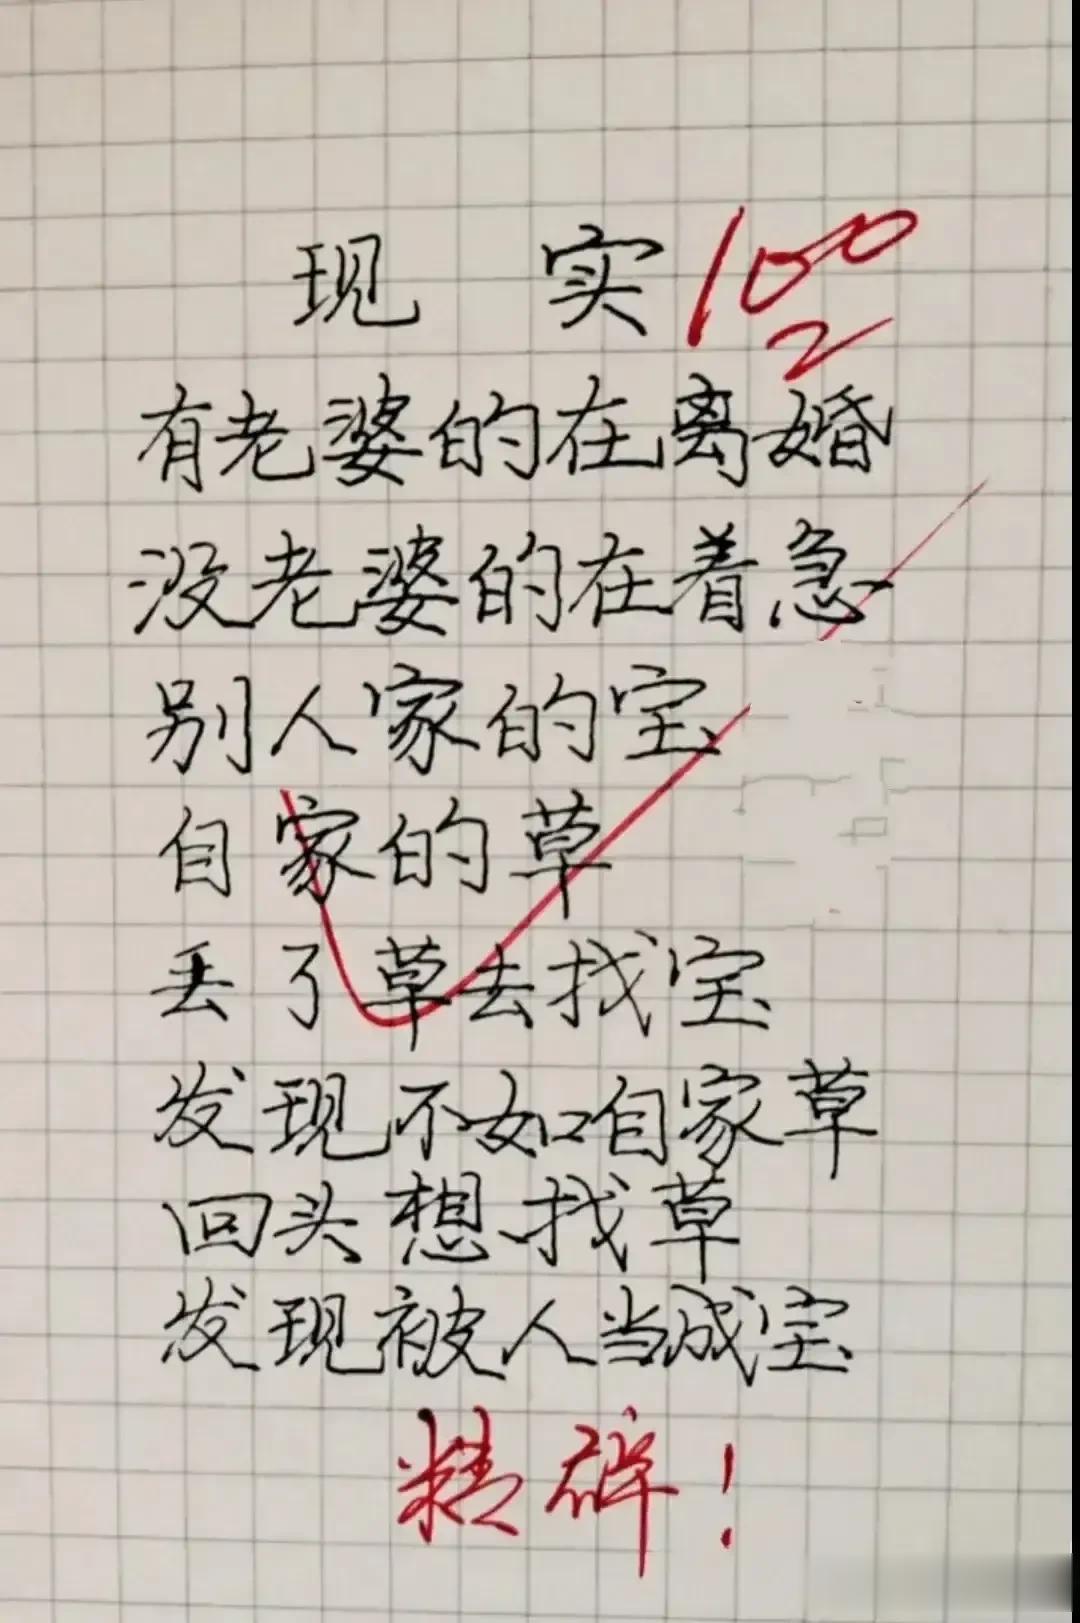 现实 100
有老婆的在离婚
没老婆的在着急
别人家的宝
自家的草
丢了草去找宝
发现不如自家草
回头想找草
发现被人当成宝
精辟!